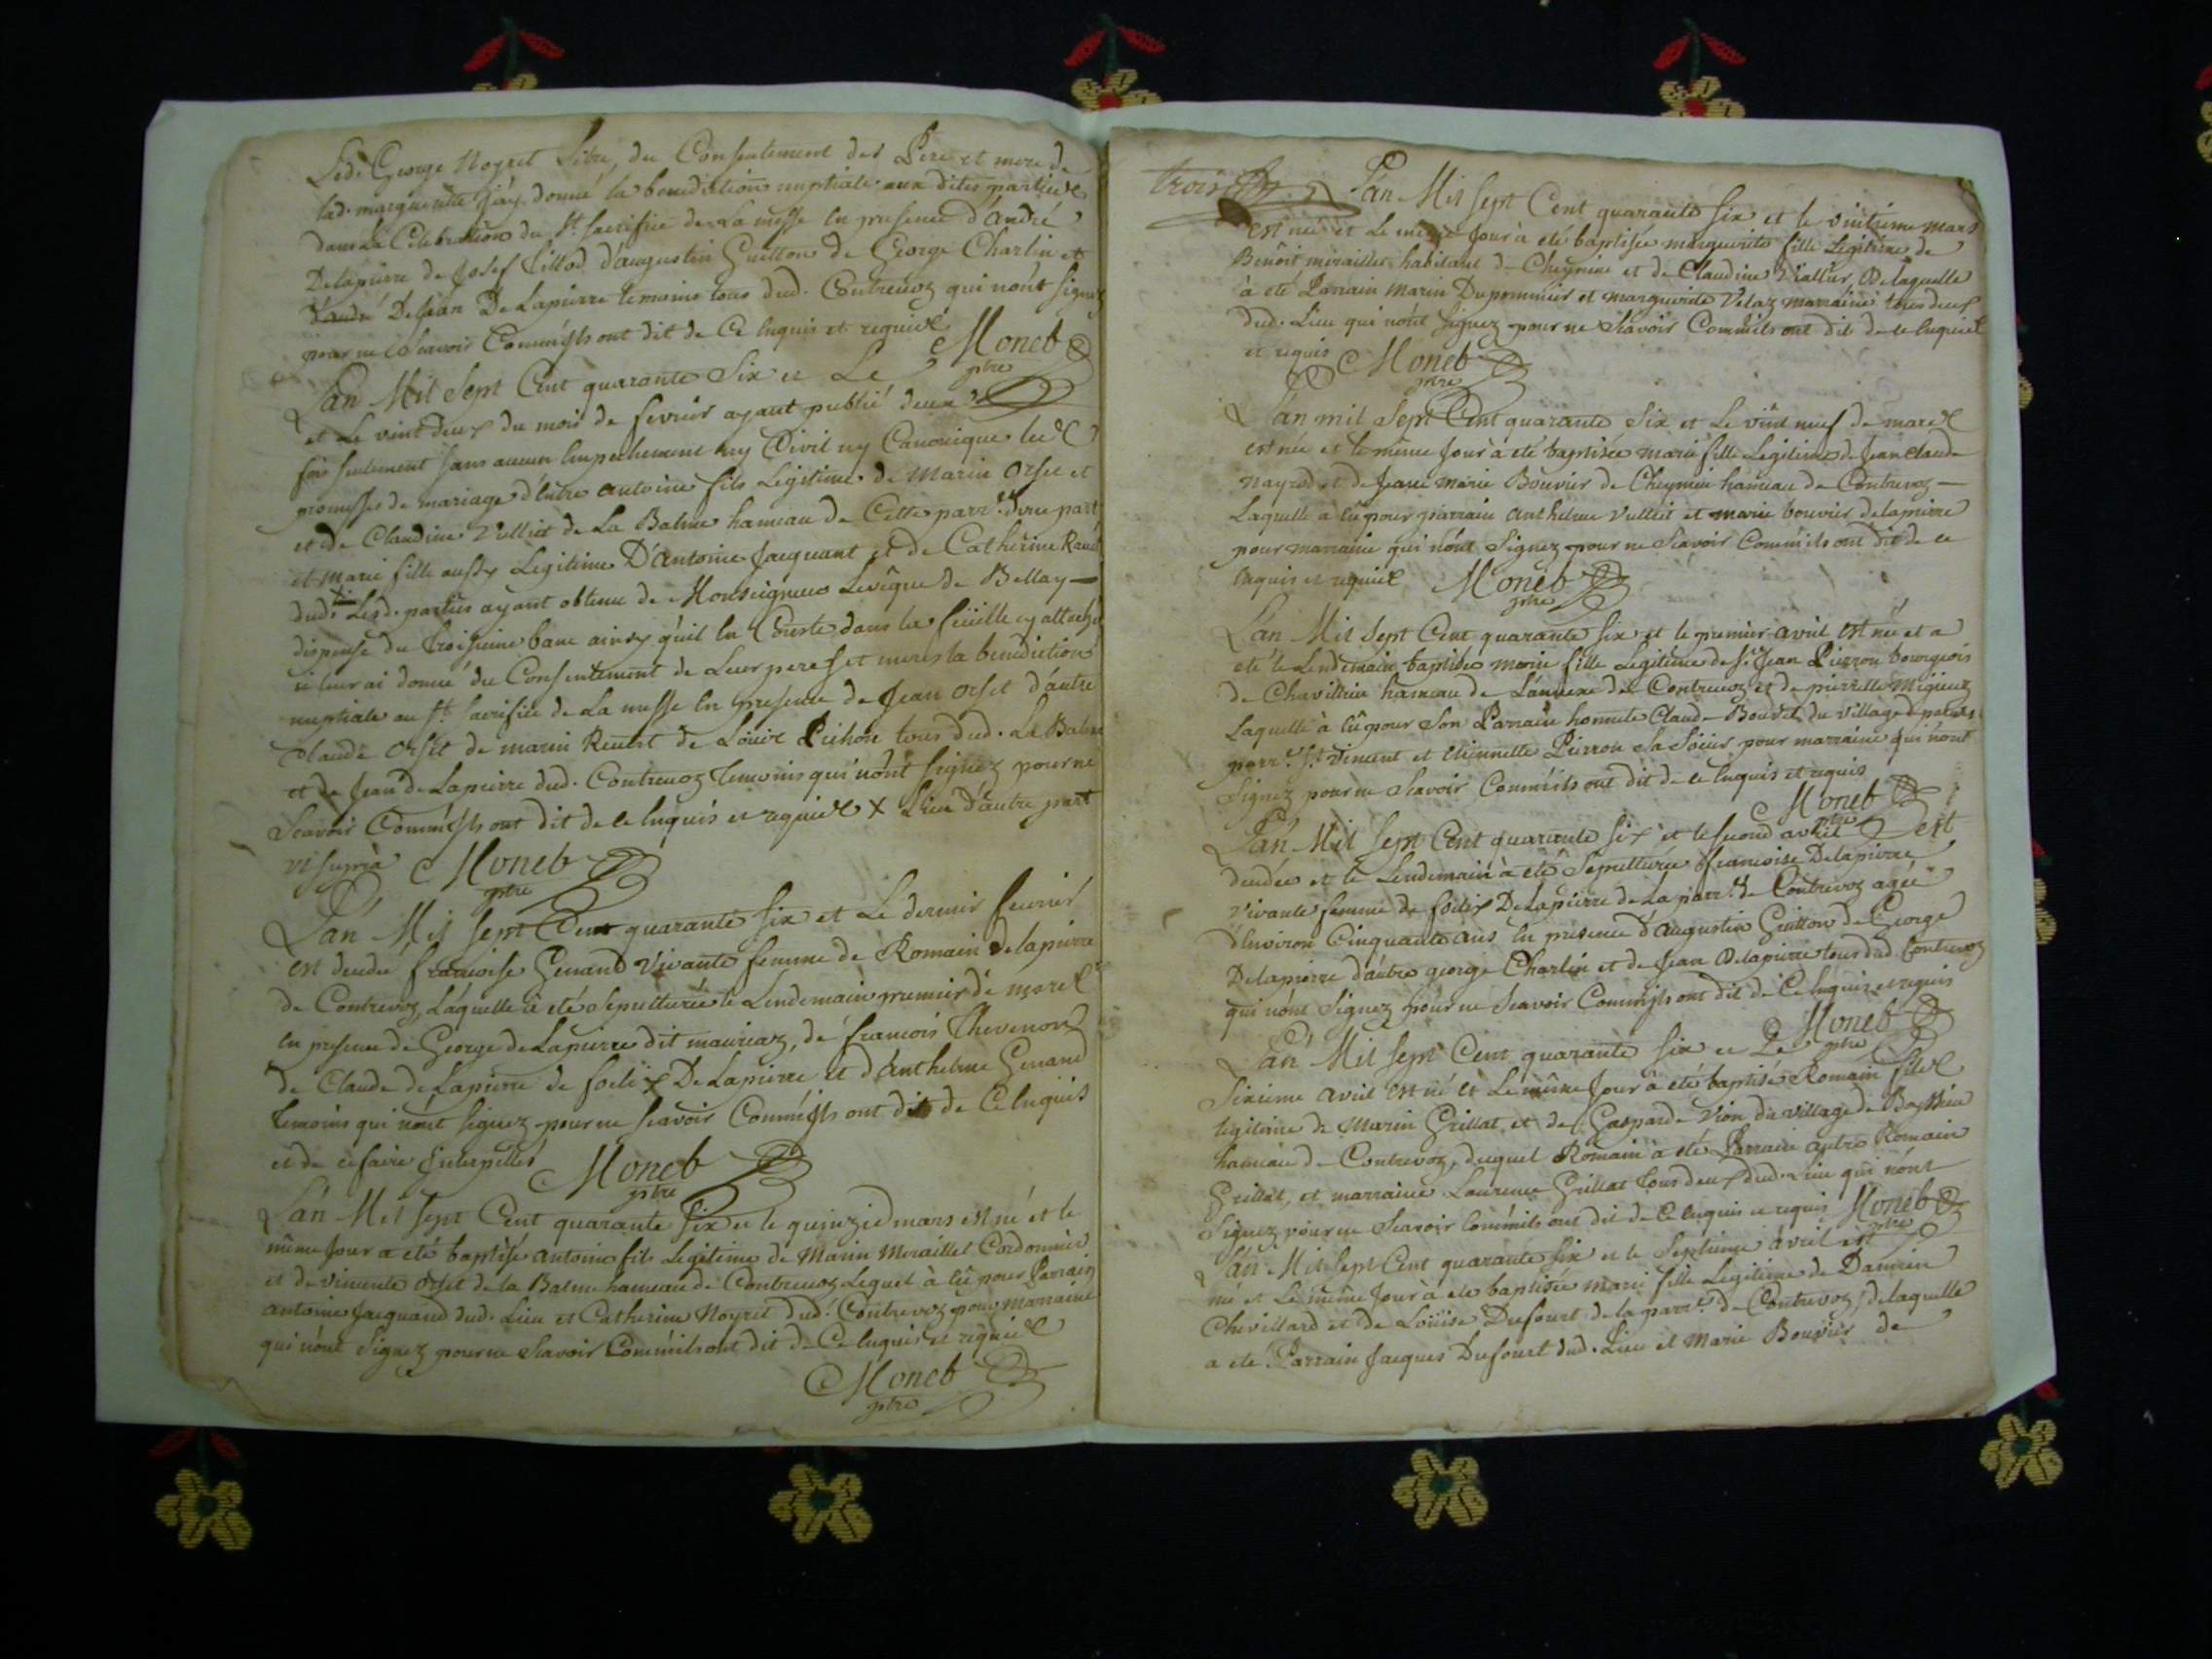 Led. George Noyret Libre, du Consentement des Pere et mere de
lad. marguerite J'ay donné la benediction nuptiale aux dites parties
dans La Célébration du St. sacrifice de La messe en presence d'André
Delapierre de Josef Tillod d'augustin Guitton de George Charlin et
De Jean De Lapierre temoins tous dud. Contrevoz qui n'ont signez
pour ne Scavoir Comm'ils ont dit de Ce Enquis et requis Moneb
ptre
L'an Mil Sept Cent quarante Six et Le
et Le vint deux du mois de fevrier ayant publié deux
fois seulement sans aucun Empechement ny Civil ny Canonique les
promesses de mariage d'Entre antoine fils Legitime de Marin Orset et
et de Claudine Vulliet de La Balme hameau de Cette parr. d'une part
et Marie fille aussy Legitime D'antoine Jacquant et de Catherine
dud. X Lesd. parties ayant obtenu de Monseigneur Leveque de Bellay
dispense du troisieme banc ainsy qu'il En Conste dans la feüille cy attachée
je leur ai donné du Consentement de Leurs peres et meres la benediction
nuptiale au St. Sacrifice de La messe En presence de Jean orset d'autre
Claude Orset de marin de Louis Pichon tous dud. La Balme
et de Jean de Lapierre dud. Contrevoz temoins qui n'ont signez pour ne
Scavoir Comm'ils ont dit de Ce Enquis et requis X Lieu d'autre part
ut supra Moneb
ptre
L'an Mil Sept Cent quarante six et Le dernier fevrier
est decedée francoise Genand Vivante femme de Romain Delapierre
de Contrevoz, Laquelle à eté sepulturée le Lendemain premier de mars
En presence de George de Lapierre dit mauriaz, de francois Thevenon
de Claude de Lapierre de foelix De Lapierre et d'Anthelme Genand
temoins qui n'ont signez pour ne scavoir Comm'ils ont dit de Ce Enquis
et de ce faire Interpellés Moneb
ptre
L'an Mil Sept Cent quarante Six et le quinzie mars est né et le
même Jour a eté baptisé antoine fils Legitime de Marin Miraillet Cordonnier
et de vincente Orset de la Balme hameau de Contrevoz Lequel à Eû pour Parrain
antoine Jacquand dud. Lieu et Catherine Noyret dud. Contrevoz pour Marraine
qui n'ont Signez pour ne Scavoir Comm'ils ont dit de Ce Enquis et requis
Moneb
ptre
trois
L'an Mil Sept Cent quarante six et le vintieme mars
est née et Le même Jour à eté baptisée marguerite fille Legitime de
Benoit miraillet habitant de Cheymieu et de Claudine Viallier, De laquelle
à eté Parrain Marin Dupommier et marguerite Velaz marraine tous deux
dud. Lieu qui n'ont signez pour ne Scavoir Comm'ils ont dit de ce Enquis
et requis Moneb
ptre
L'an mil Sept Cent quarante Six et Le vint neuf de mars
est née et le même Jour à eté baptisée marie fille Legitime de Jean Claude
Nayrod et de Jeane Marie Bouvier de Cheymieu hameau de Contrevoz
Laquelle à Eû pour parrain anthelme vulliet et marie bouvier delapierre
pour marraine qui n'ont Signez pour ne Scavoir Comm'ils ont dit de ce
Enquis et requis Moneb
ptre
L'an Mil Sept Cent quarante six et le premier avril est née et a
eté le Lendemain baptisée marie fille Legitime de Sr. Jean Pierron bourgeois
de Chavillieu hameau de L'annexe de Contrevoz et de pierrette Migieux
Laquelle à Eû pour Son Parrain honnete Claude Bouvet du village
parr. St. Vincent et Etiennette Pierron Sa Soeur pour marraine qui n'ont
Signez pour ne Scavoir Comm'ils ont dit de ce Enquis et requis
Moneb
ptre
L'an Mil Sept Cent quarante six et le second avril est
decedée et le Lendemain à eté Sepulturée francoise Delapierre
Vivante femme de foelix Delapierre de La parr. de Contrevoz agée
d'Environ Cinquante ans En presence d'augustin Guitton de George
Delapierre d'autre george Charlin et de Jean Delapierre tous dud. Contrevoz
qui n'ont Signez pour ne Scavoir Comm'ils ont dit de Ce Enquis et requis
Moneb
ptre
L'an Mil Sept Cent quarante six et Le
Sixieme avril est né et Le même Jour à eté baptisé Romain fils
legitime de Marin Grillat et de Gasparde Vion du village de
hameau de Contrevoz, duquel Romain à eté Parrain autre Romain
Grillat, et marraine Laurence Grillat tous deux dud. Lieu qui n'ont
Signez pour ne Scavoir Comm'ils ont dit de Ce Enquis et requis Moneb
ptre
L'an Mil Sept Cent quarante six et le Septieme avril est
né et Le même Jour à eté baptisée marie fille Legitime de Damien
Chevillard et de Loüise Dufourt de la parr. de Contrevoz, de laquelle
a eté Parrain Jacques Dufourt dud. Lieu et Marie Bouvier de